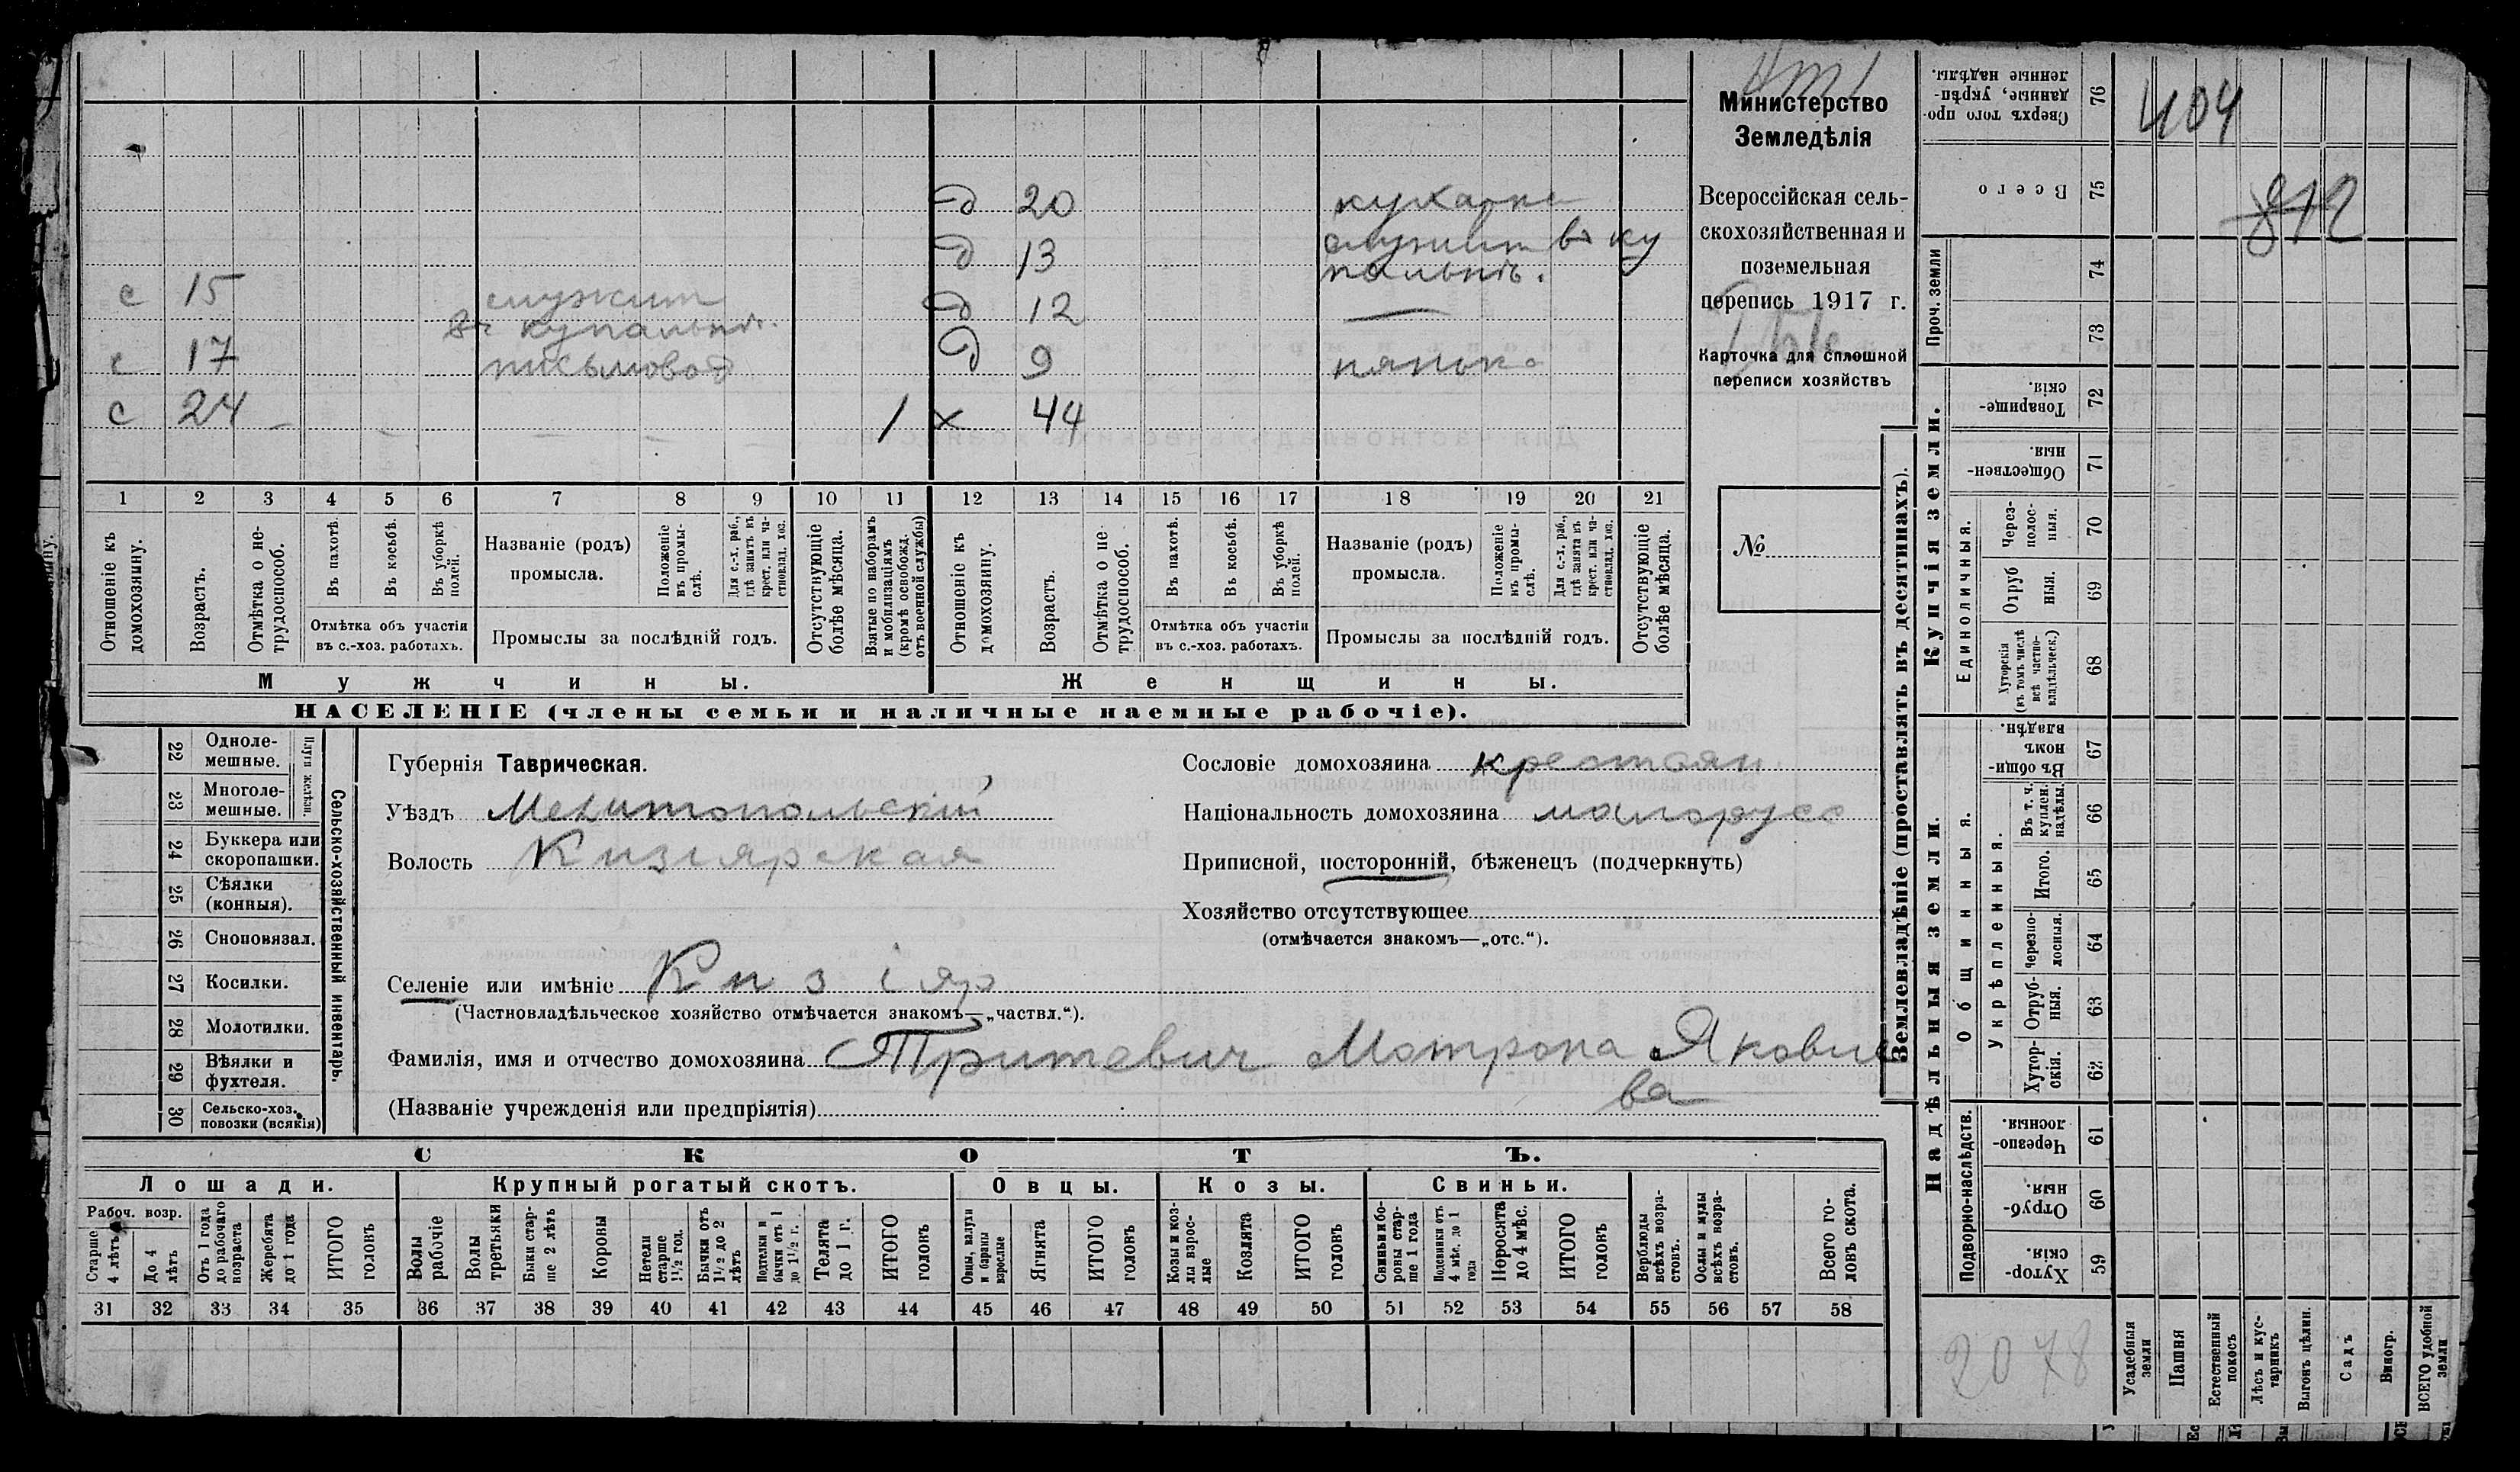 404
812
д 20 кухарка
д 13 служит въ ку
пальнѣ.
с 15 служит
въ купальнѣ.
д 12 —
с 17 письмовод
д 9 нянька
с 24 1 х 44
1 2 3 4 5 6 7 8 9 10 11 12 13 14 15 16 17 18 19 20 21
Отношеніе къ домохозяину.
Возрастъ.
Отмѣтка о не-трудоспособ.
Въ пахотѣ.
Въ косьбѣ.
Въ уборкѣ полей.
Отмѣтка объ участіи
въ с.-хоз. работахъ.
Названіе (родъ)
промысла.
Положеніе въ промы-слѣ.
Для с.-х. раб., гдѣ занятъ въ крест. или ча-стновлад. хоз.
Промыслы за послѣдній годъ.
Отсутствующіе болѣе мѣсяца.
Взятые по наборамъ и мобилизаціямъ (кромѣ освобожд. отъ военной службы)
Отношеніе къ домохозяину.
Возрастъ.
Отмѣтка о не-трудоспособ.
Въ пахотѣ.
Въ косьбѣ.
Въ уборкѣ полей.
Отмѣтка объ участіи
въ с.-хоз. работахъ.
Названіе (родъ)
промысла.
Положеніе въ промы-слѣ.
Для с.-х. раб., гдѣ занята въ крест. или ча-стновлад. хоз.
Промыслы за послѣдній годъ.
Отсутствующіе болѣе мѣсяца.
Мужчины.
Женщины.
НАСЕЛЕНІЕ (члены семьи и наличные наемные рабочіе).
Министерство
Земледѣлія
Всероссійская сель-
скохозяйственная и
поземельная
перепись 1917 г.
Карточка для сплошной
переписи хозяйствъ
№
Плуги желѣзн.
22 Одноле-мешные.
23 Многоле-мешные.
24 Буккера или скоропашки.
25 Сѣялки (конныя).
26 Сноповязал.
27 Косилки.
28 Молотилки.
29 Вѣялки и фухтеля.
30 Сельско-хоз. повозки (всякія)
Сельско-хозяйственный инвентарь.
Губернія Таврическая.
Уѣздъ Мелитопольскій
Волость Кизіярская
Сословіе домохозяина крестьян.
Національность домохозяина малорусс
Приписной, посторонній, бѣженецъ (подчеркнуть)
Хозяйство отсутствующее
(отмѣчается знакомъ—„отс.“).
Селеніе или имѣніе Кизіяр
(Частновладѣльческое хозяйство отмѣчается знакомъ—„частвл.“).
Фамилія, имя и отчество домохозяина Тритевич Мотрона Яковле
ва
(Названіе учрежденія или предпріятія)
СКОТЪ.
Лошади.
Крупный рогатый скотъ.
Овцы.
Козы.
Свиньи.
Рабоч. возр.
Старше 4 лѣтъ
До 4 лѣтъ
Отъ 1 года до рабочаго возраста
Жеребята до 1 года
ИТОГО головъ
Волы рабочіе
Волы третьяки
Быки стар-ше 2 лѣтъ
Коровы
Нетели старше 1½ год.
Бычки отъ 1½ до 2 лѣтъ
Подтелки и бычки отъ 1 до 1½ г.
Телята до 1 г.
ИТОГО головъ
Овцы, валухи и бараны взрослые
Ягнята
ИТОГО головъ
Козы и коз-лы взрос-лые
Козлята
ИТОГО головъ
Свиньи и бо-ровы стар-ше 1 года
Подсвинки отъ 4 мѣс. до 1 года
Поросята до 4 мѣс.
ИТОГО головъ
Верблюды всѣхъ возра-стовъ.
Ослы и мулы всѣхъ возра-стовъ.
Всего го-ловъ скота.
31 32 33 34 35 36 37 38 39 40 41 42 43 44 45 46 47 48 49 50 51 52 53 54 55 56 57 58
Землевладѣніе (проставлять въ десятинахъ).
Сверхъ того про-данные, укрѣп-ленные надѣлы. 76
Всего 75
Проч. земли
74
73
Купчія земли.
Товарище-скія. 72
Обществен-ныя. 71
Единоличныя.
Через-полос-ныя. 70
Отруб-ныя. 69
Хуторскія (въ томъ числѣ всѣ частно-владѣльческ.) 68
Надѣльныя земли.
Общинныя.
Въ общи-номъ владѣн. 67
Укрѣпленныя.
Въ т. ч. куплен. надѣлы. 66
Итого. 65
Черезпо-лосныя. 64
Отруб-ныя. 63
Хутор-скія. 62
Подворно-наслѣдств.
Черезпо-лосныя. 61
Отруб-ныя. 60
Хутор-скія. 59
2078
Усадебныя земли
Пашня
Естественный покосъ
Лѣсъ и кус-тарникъ
Выгонъ цѣлин.
Садъ
Виногр.
ВСЕГО удобной земли